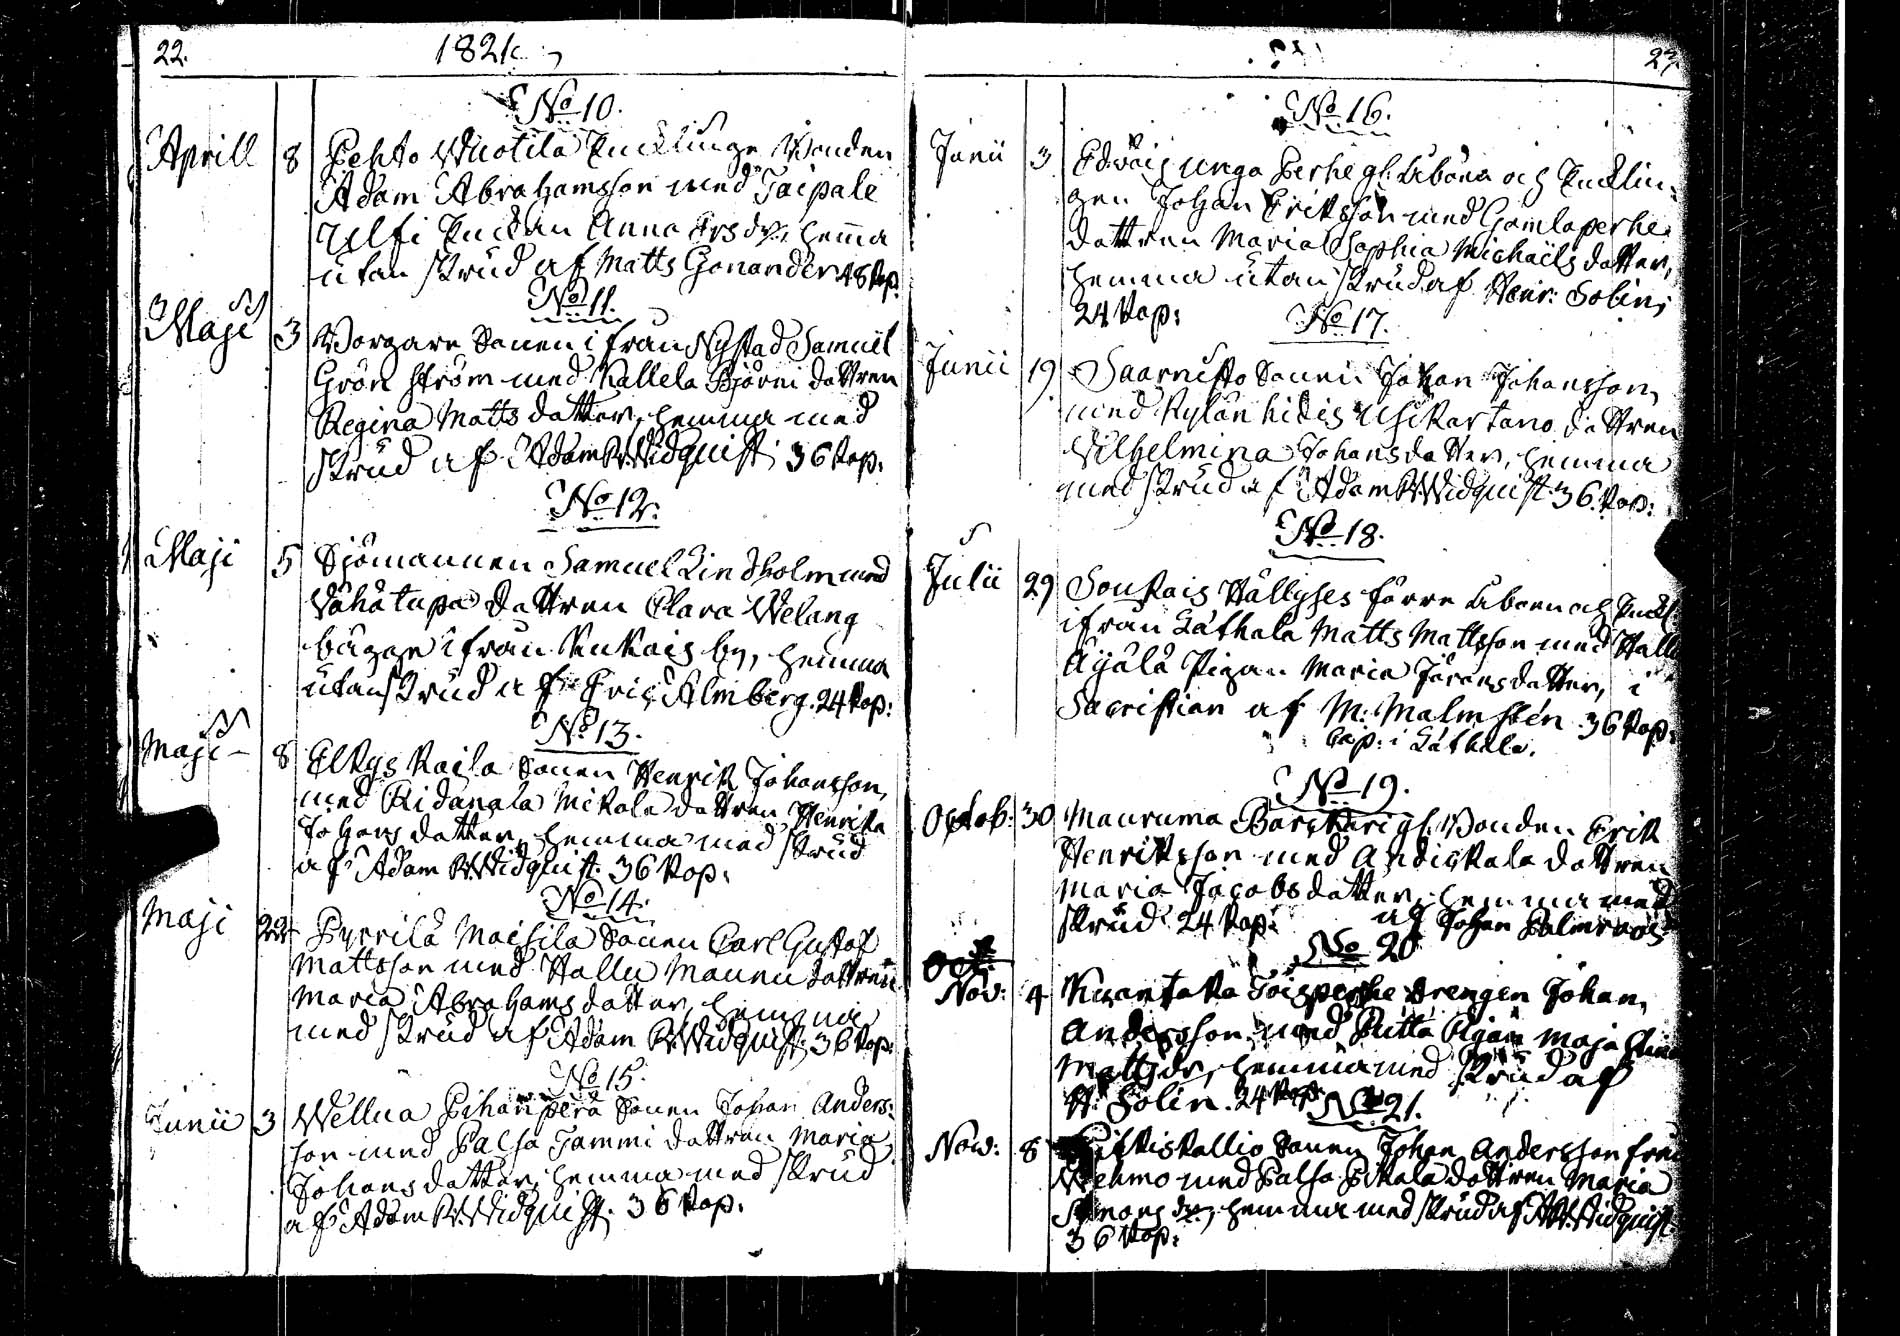 22.
1821
No 10.
Aprill 8 Pehto Wuotila Encklinge Bonden
Adam Abrahamsson med Taipale
Ulfi Enckan Anna Ersdr, hemma
utan skrud af Matts Gonander 48 kop:
No 11.
Maji 3 Borgare Sonen ifrån Nystad Samuel
Grönström med Kallela Björni dottren
Regina Mattsdotter, hemma med
skrud af Adam Widquist. 36 kop:
No 12.
Maji 5 Sjömannen Samuel Lindholm med
Vähätupa dottren Clara Welang
bägge ifrån Kukais by, hemma
utan skrud af Eric Almberg. 24 kop:
No 13.
Maji 8 Elkys Kaila Sonen Henrik Johansson,
med Ridanala Mikola dottren Henrika
Johansdotter, hemma med skrud
af Adam Widquist. 36 kop:
No 14.
Maji 22 Pyyrilä Maisila Sonen Carl Gustaf
Mattsson med Hallu Maunu dottren
Maria Abrahamsdotter, hemma
med skrud af Adam Widquist. 36 kop:
No 15.
Junii 3 Wellua Pihanperä Sonen Johan Anders-
son med Palsa Tammi dottren Maria
Johansdotter, hemma med skrud
af Adam Widquist. 36 kop:
23
No 16.
Junii 3 Edväis unga Perhe gl. Åboen och Encklin-
gen Johan Eriksson med Gamlaperhe
dottren Maria Sophia Michaelsdotter,
hemma utan skrud af Henr: Solin;
24 kop:
No 17.
Junii 19 Saaristo Sonen Johan Johansson,
med Kylänhidis Ylikartano dottren
Vilhelmina Johansdotter, hemma
med skrud af Adam Widquist. 36. kop:
No 18.
Julii 29 Soukais Hällyses förre Åboen och Enckl:
ifrån Láthala Matts Mattsson med Hallu
Äijälä Pigan Maria Göransdotter, i
Sacristian af M: Malmstén. 36 kop:
Cap: i Láthala.
No 19.
Octob: 30 Mauruma gl. Bonden Erik
Henriksson med Andiskala dottren
Maria Jacobsdotter, hemma med
skrud 24 kop: af Johan Palmroos
No 20
Oct:
Nov: 4 Drengen Johan
Andersson, med Pigan Maja Stina
Mattsdr, hemma med skrud af
H: Solin. 24 kop:
No 21.
Nov: 8 Sonen Johan Andersson från
Wehmo med Palsa Pikala dottren Maria
Simonsdr, hemma med skrud af A. Widquist.
36 kop: